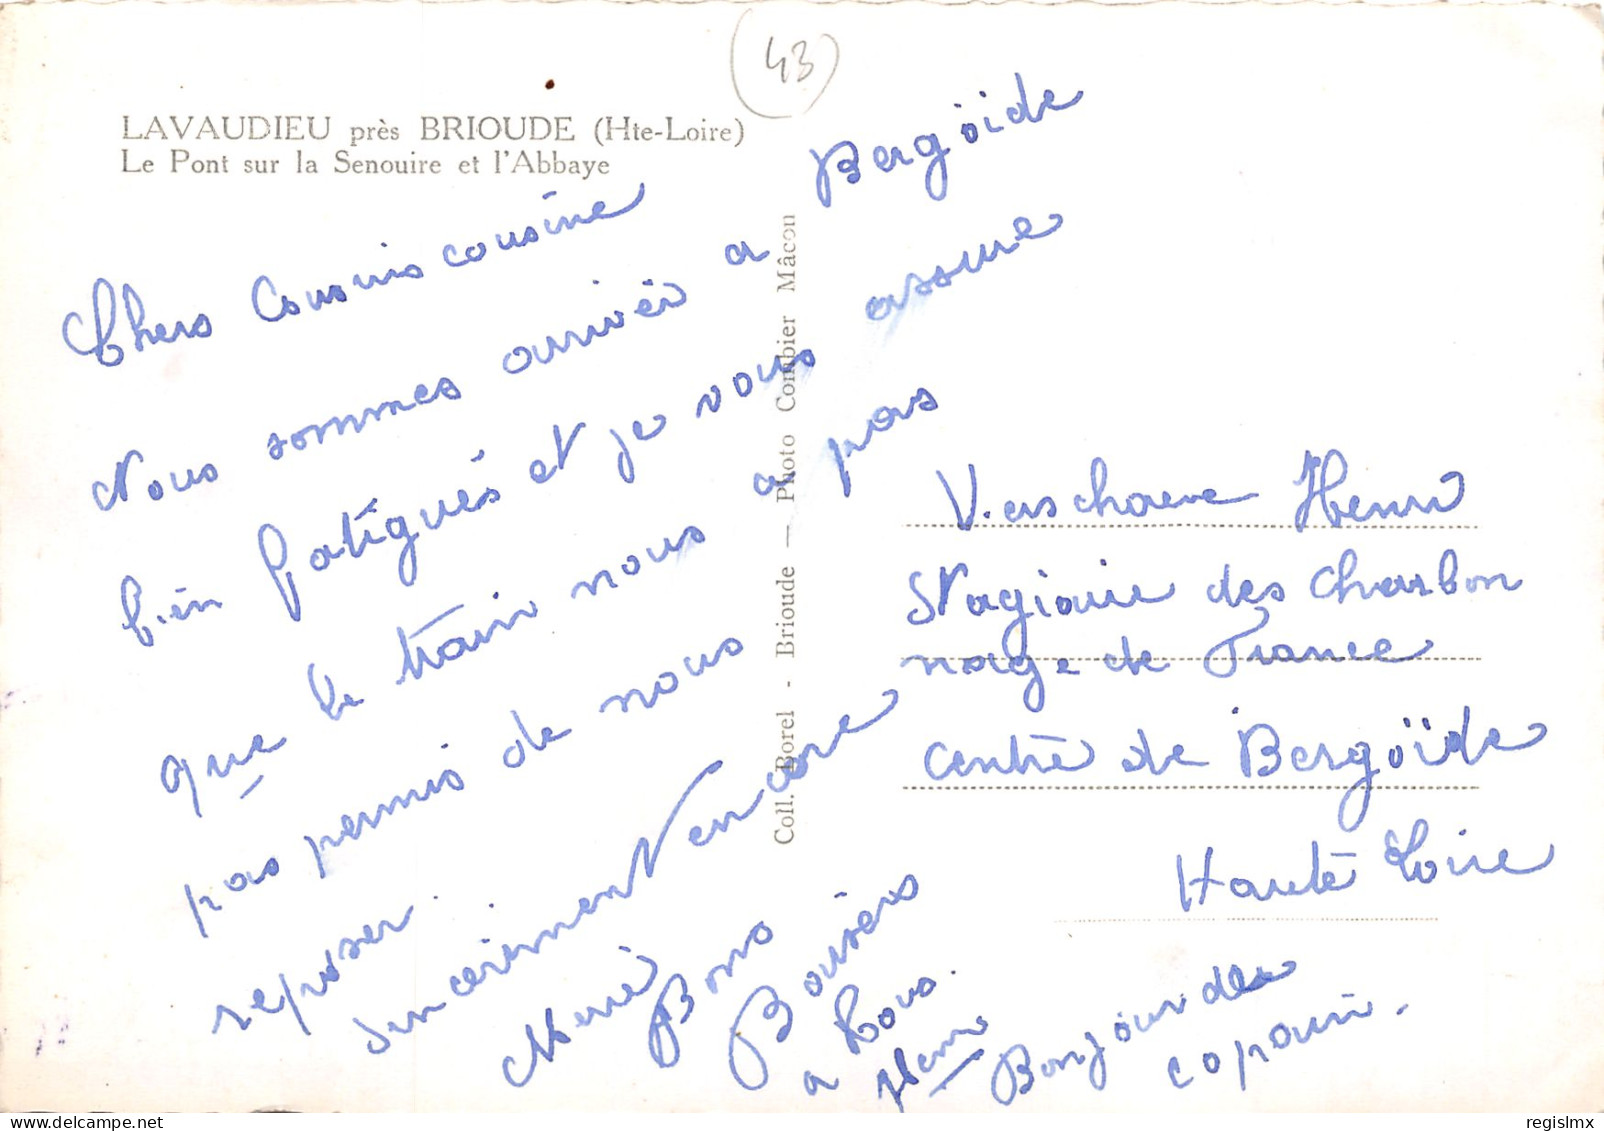 (43)
LAVAUDIEU près BRIOUDE (Hte-Loire)
Le Pont sur la Senouire et l'Abbaye
Chers Cousins cousine
Nous sommes arrivés a Bergoïde
bien fatigués et je vous assure
que le train nous a pas
pas permis de nous
reposer.
Sincèrement encore
Merci
Bons
Baisers
a Tous.
Henri
Bonjour des
copain.
Coll. Borel - Brioude — Photo Combier Mâcon
Verschaeve Henri
Stagiaire des Charbon
nage de France
Centre de Bergoïde
Haute Loire
regislmx